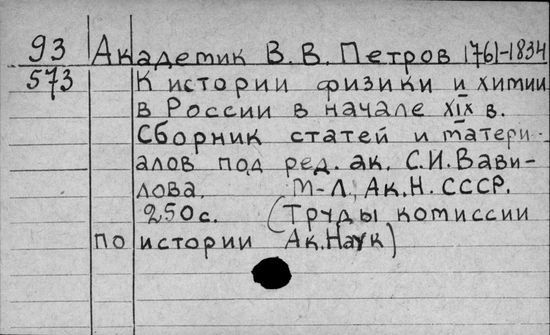 93 Академик В. В. Петров 1761-1834
573 К истории физики и химии
в России в начале XIX в.
Сборник статей и матери-
алов под ред. ак. С.И. Вави-
лова. М-Л, Ак.Н. СССР.
250с. (Труды комиссии
по истории Ак.Наук)